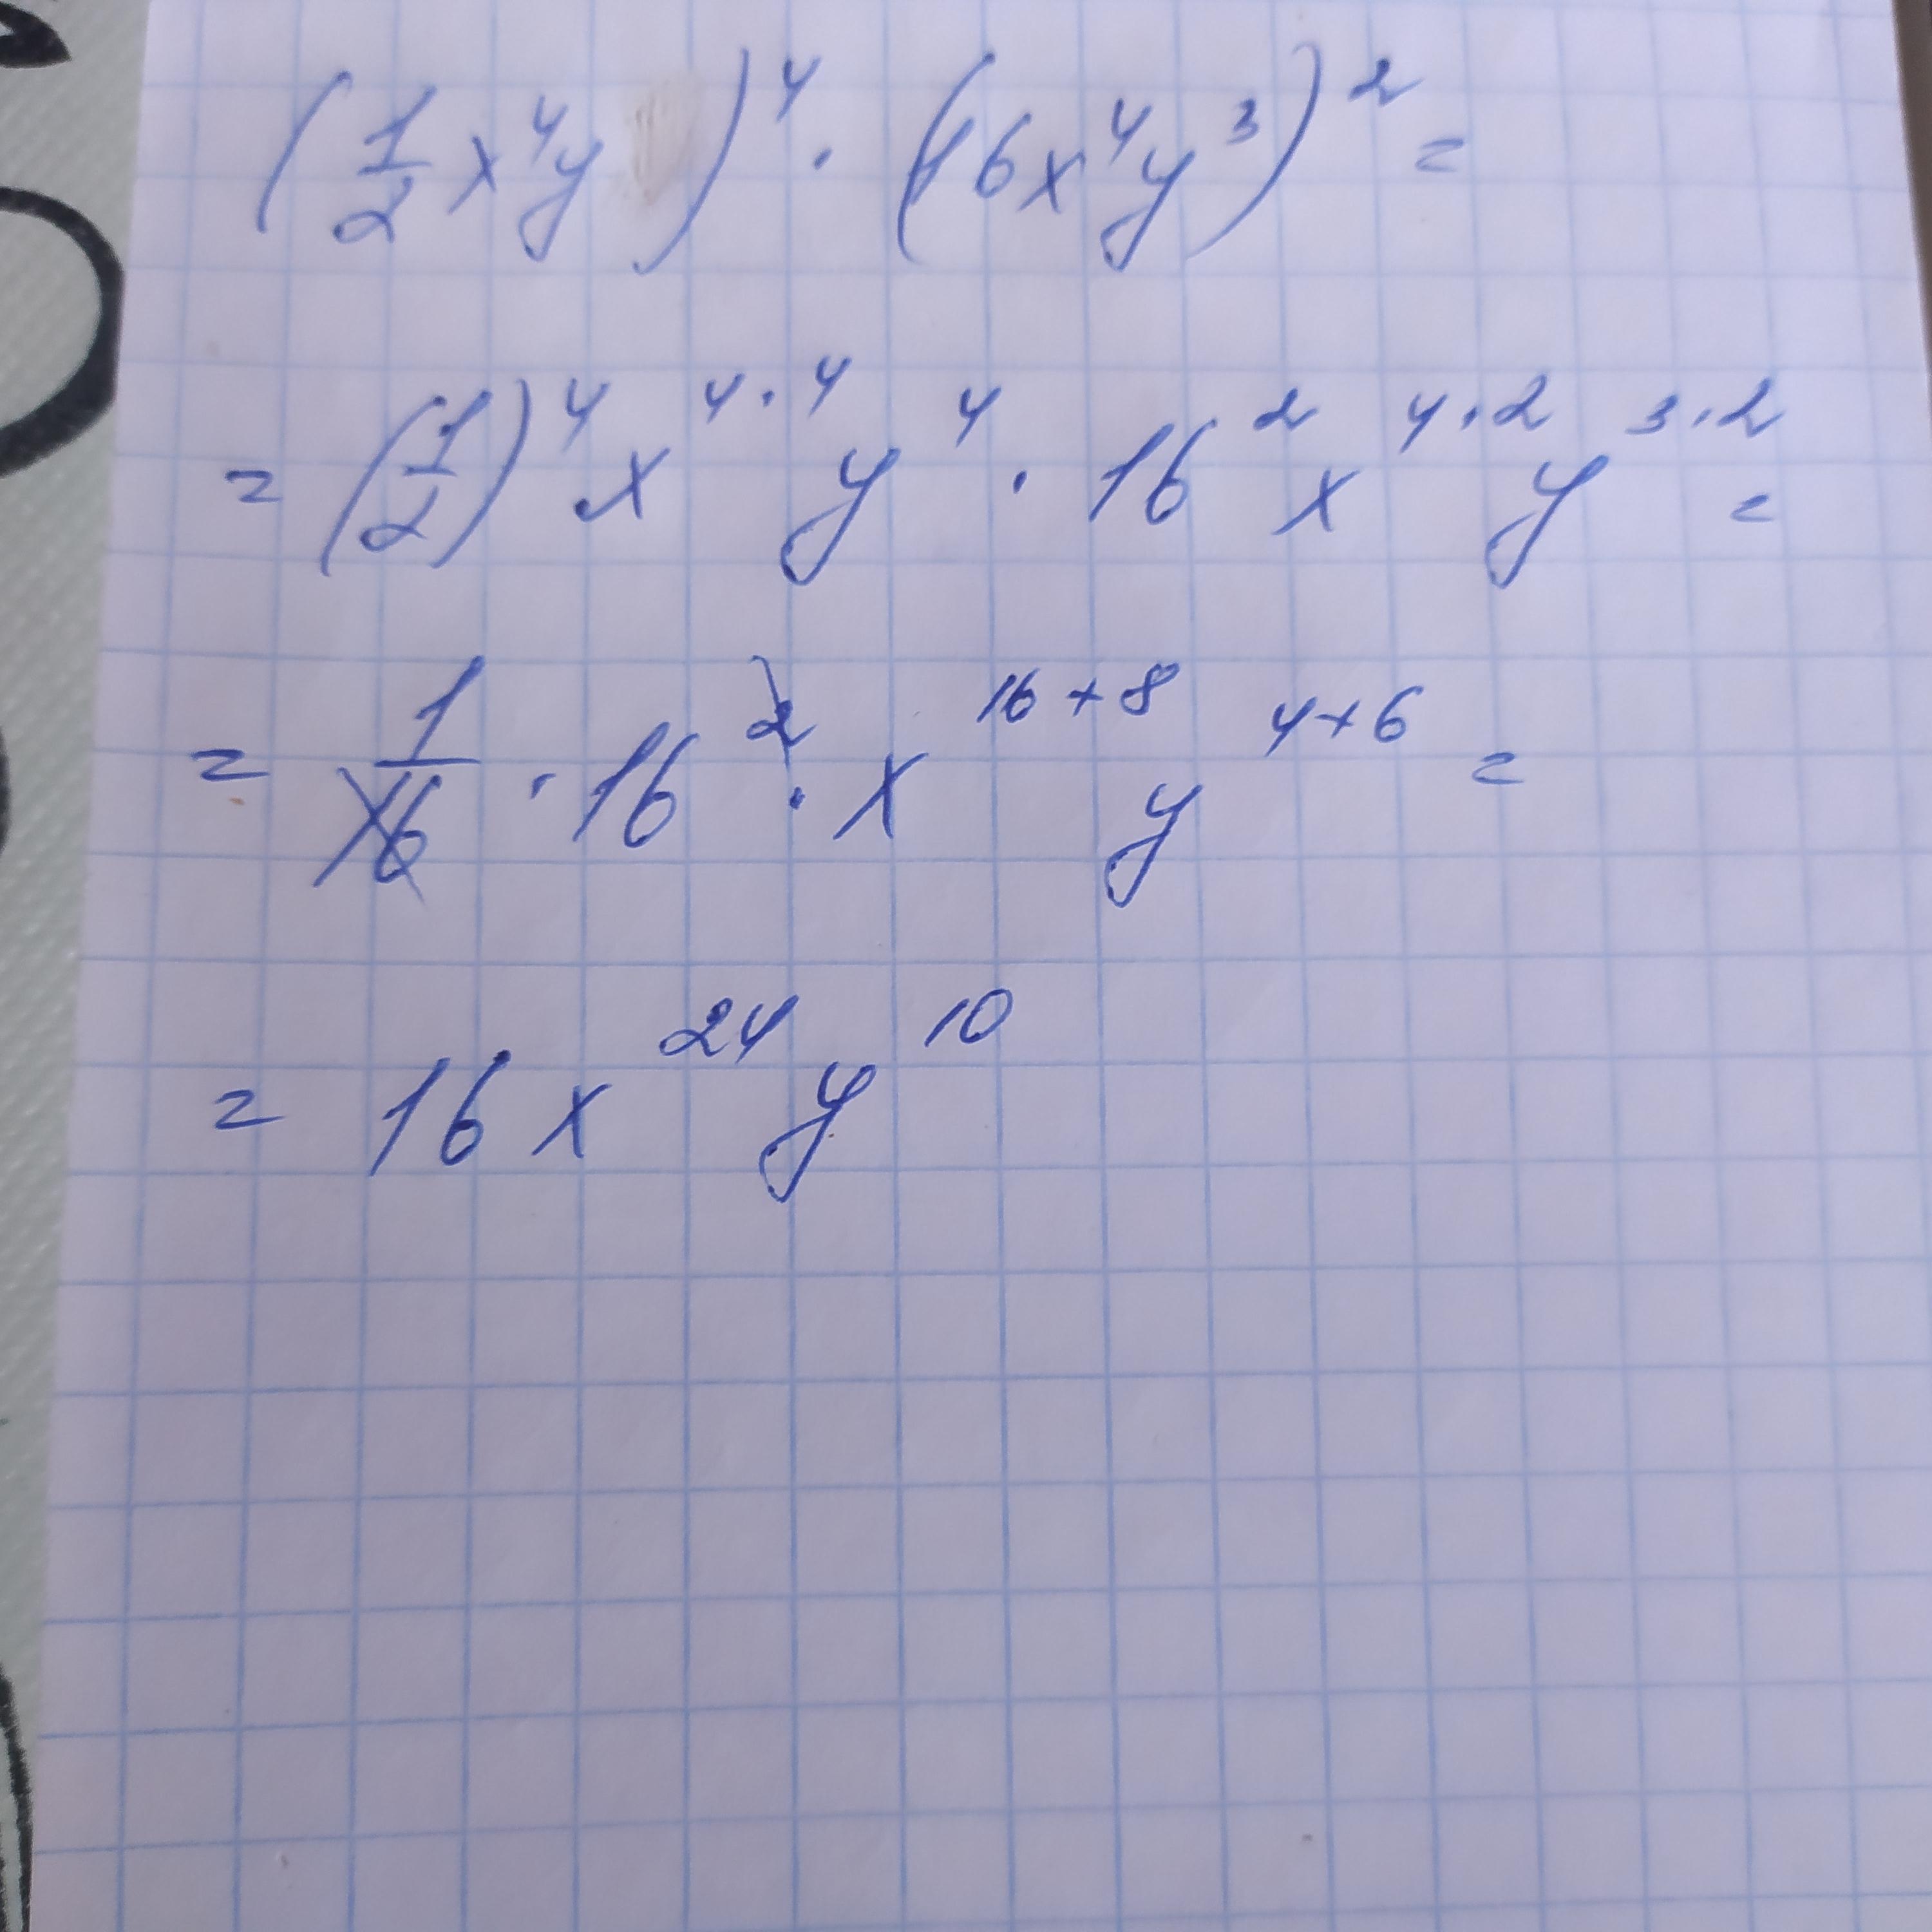 (1/2 x⁴y)⁴ · (16x⁴y³)² =
= (1/2)⁴ x⁴·⁴ y⁴ · 16² x⁴·² y³·² =
= 1/16 · 16² · x¹⁶⁺⁸ y⁴⁺⁶ =
= 16x²⁴y¹⁰